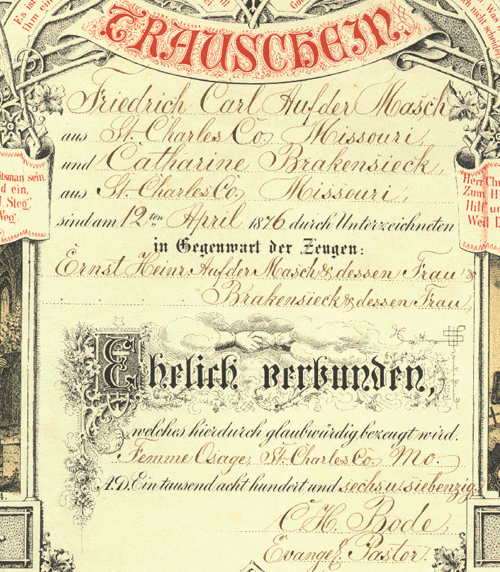 TRAUSCHEIN.
Friedrich Carl Aufder Masch,
aus St. Charles Co, Missouri,
und Catharine Brakensieck,
aus St. Charles Co, Missouri,
sind am 12ten April 1876 durch Unterzeichneten
in Gegenwart der Zeugen:
Ernst Heinr Aufder Masch & dessen Frau &
Brakensieck & dessen Frau,
Ehelich verbunden,
welches hierdurch glaubwürdig bezeugt wird.
Femme Osage, St. Charles Co, Mo,
A.D. Ein tausend acht hundert und sechs u. siebenzig
C. H. Bode,
Evangel. Pastor.